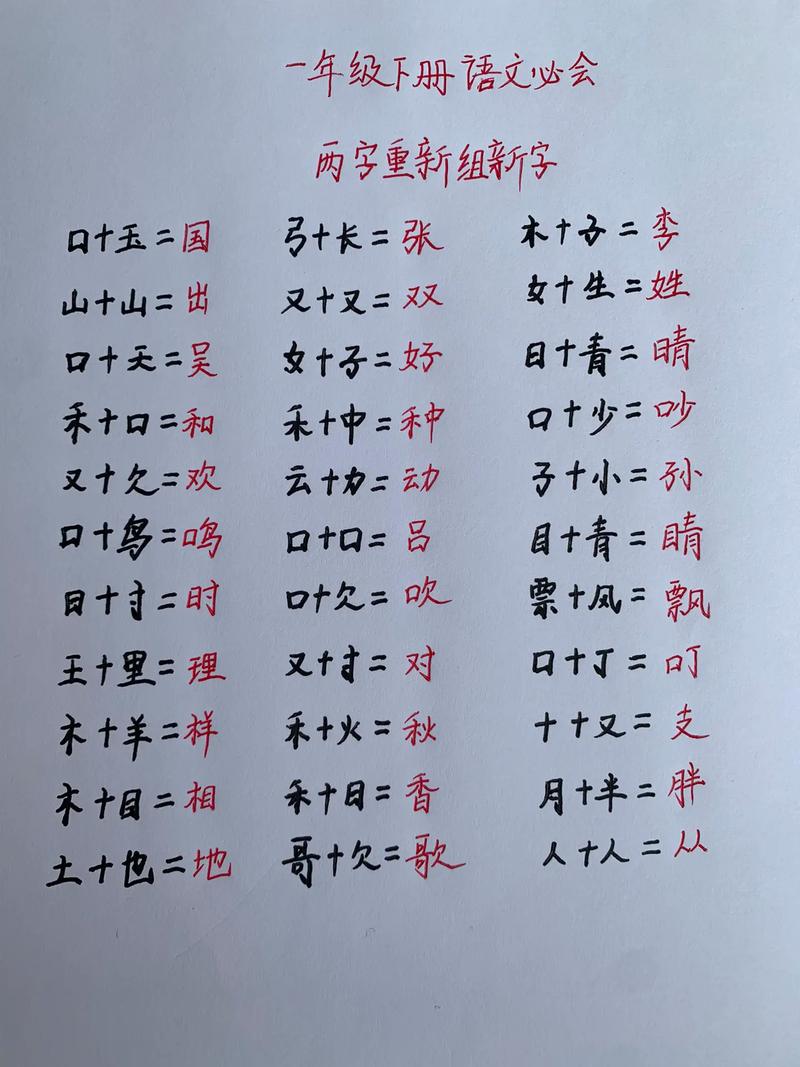 一年级下册语文必会
两字重新组新字
口+玉=国 弓+长=张 木+子=李
山+山=出 又+又=双 女+生=姓
口+天=吴 女+子=好 日+青=晴
禾+口=和 禾+中=种 口+少=吵
又+欠=欢 云+力=动 子+小=孙
口+鸟=鸣 口+口=吕 目+青=睛
日+寸=时 口+欠=吹 票+风=飘
王+里=理 又+寸=对 口+丁=叮
木+羊=样 禾+火=秋 十+又=支
木+目=相 禾+日=香 月+半=胖
土+也=地 哥+欠=歌 人+人=从